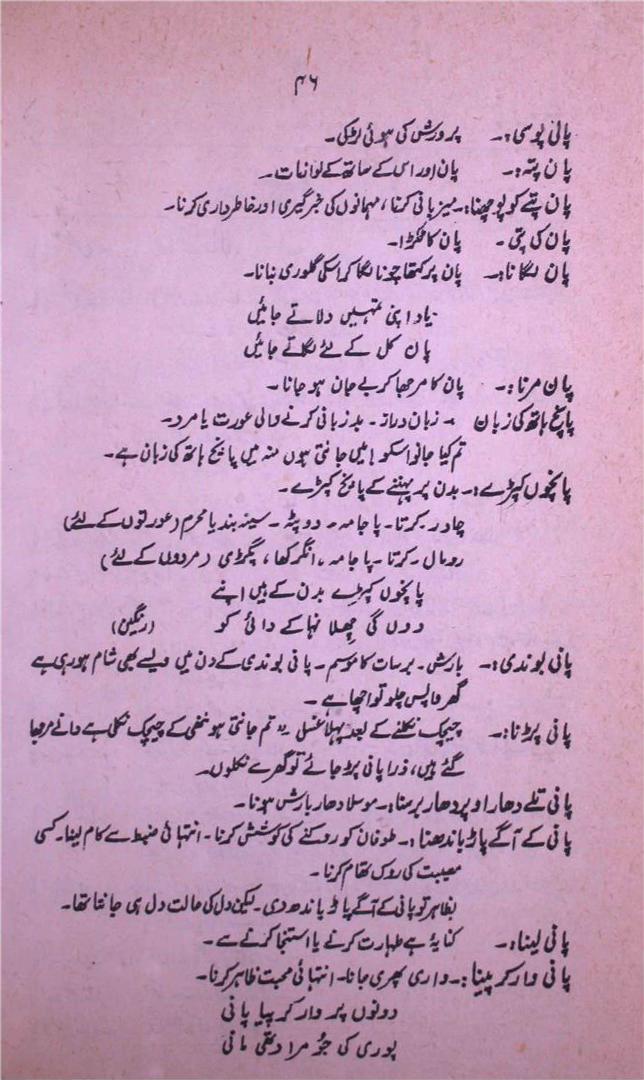 ۴۶
پالی پوسی :۔ پرورش کی ہوئی لڑکی۔
پان پتہ :۔ پان اور اس کے ساتھ کے لوازمات۔
پان پتے کو پوچھنا :۔ میزبانی کرنا، مہمانوں کی خبرگیری اور خاطرداری کرنا۔
پان کی پتی ۔ پان کا ٹکڑا۔
پان لگانا :۔ پان پر کتھا چونا لگا کر اسکی گلوری بنانا۔
یاد اپنی تمہیں دلاتے جائیں
پان کل کے لئے لگاتے جائیں
پان مرنا :۔ پان کا مرجھا کر بے جان ہو جانا ۔
پانچ ہاتھ کی زبان :۔ زبان دراز ۔ بدزبانی کرنے والی عورت یا مرد۔
تم کیا جانو اسکو! میں جانتی ہوں منہ میں پانچ ہاتھ کی زبان ہے۔
پانچوں کپڑے :۔ بدن پر پہننے کے پانچ کپڑے ۔
چادر ۔ کرتا ۔ پاجامہ ۔ دوپٹہ ۔ سینہ بند یا محرم (عورتوں کے لئے)
رومال ۔ کرتا ۔ پاجامہ ، انگرکھا ، پگڑی (مردوں کے لئے)
پانچوں کپڑے بدن کے ہیں اپنے
دوں گی چھلا نہا کے دائی کو (رنگین)
پانی بوندی :۔ بارش ۔ برسات کا موسم ۔ پانی بوندی کے دن میں ویسے بھی شام ہو رہی ہے
گھر واپس چلو تو اچھا ہے ۔
پانی پڑنا :۔ چیچک نکلنے کے بعد پہلا غسل ۔ تم جانتی ہو ننھی کے چیچک نکلی ہے دانے مرجھا
گئے ہیں، ذرا پانی پڑ جائے تو گھر سے نکلوں۔
پانی تلے دھار اوپر دھار برسنا :۔ موسلا دھار بارش ہونا ۔
پانی کے آگے پاڑ باندھنا :۔ طوفان کو روکنے کی کوشش کرنا ۔ انتہائی ضبط سے کام لینا۔ کسی
مصیبت کی روک تھام کرنا ۔
بظاہر تو پانی کے آگے پاڑ باندھ دی ۔ لیکن دل کی حالت دل ہی جانتا تھا۔
پانی لینا :۔ کنایۂ ہے طہارت کرنے یا استنجا کرنے سے ۔
پانی وار کر پینا :۔ واری پھری جانا۔ انتہائی محبت ظاہر کرنا۔
دونوں پر وار کر پیا پانی
پوری کی جو مراد تھی مانی